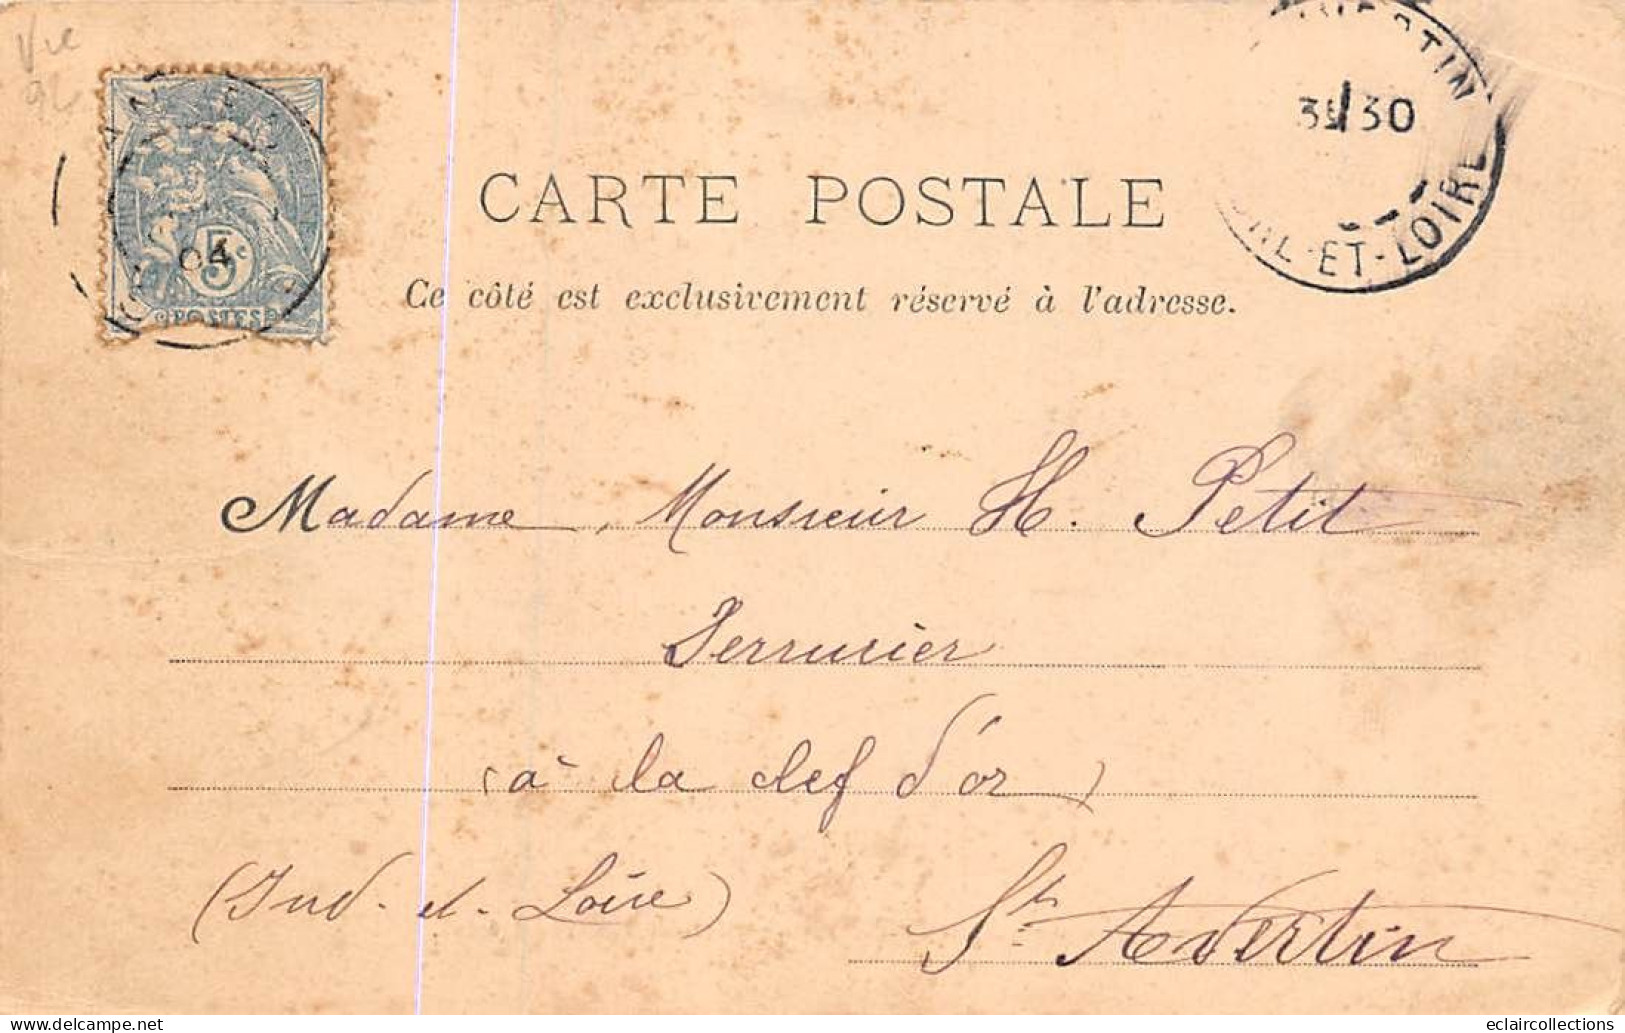 04
5c
POSTES
3E/30
ET-LOIRE
CARTE POSTALE
Ce côté est exclusivement réservé à l'adresse.
Madame, Monsieur H. Petit
Serrurier
(à la clef d'or)
(Ind-et-Loire) St Avertin
eclaircollections